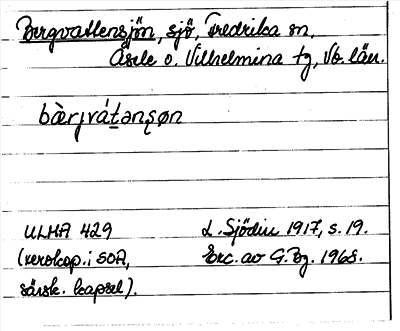 Bergvattensjön, sjö, Fredrika sn,
Åsele o. Vilhelmina tg, Vb. län.
bàrjvát̲ənʂøn
ULMA 429 L. Sjödin 1917, s. 19.
(xerokop. i SOA, Exc. av G. Bg. 1968.
särsk. kapsel).